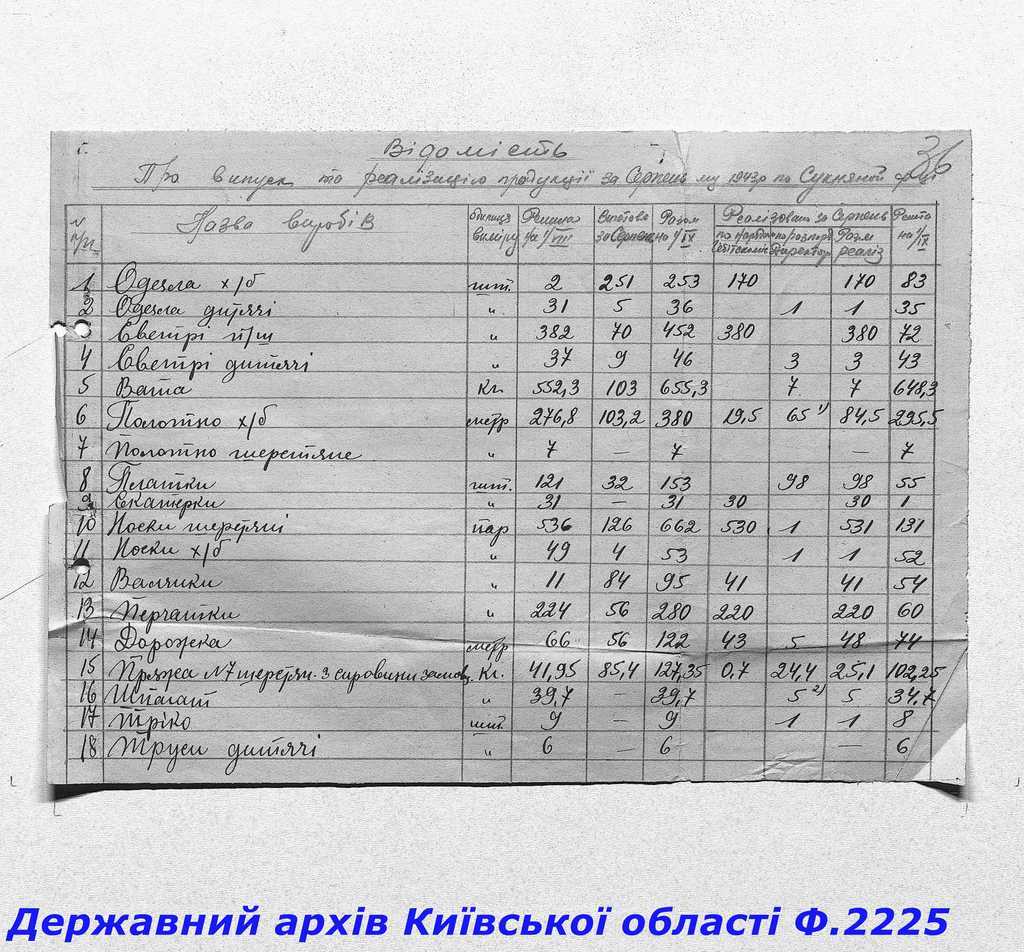 36
Відомість
Про випуск та реалізацію продукції за Серпень м-ц 1943р по Сукняній ф-ці
N п/п Назва виробів Одиниця виміру Решта на 1/VIII Виготовл. за Серпень Разом на 1/IX Реалізовано за Серпень Решта на 1/IX
по нарядам по розпор. Директор. Разом реаліз
1 Одеяла х/б шт. 2 251 253 170 170 83
2 Одеяла дитячі " 31 5 36 1 1 35
3 Светрі п/ш " 382 70 452 380 380 72
4 Светрі дитячі " 37 9 46 3 3 43
5 Вата Кг. 552,3 103 655,3 7 7 648,3
6 Полотно х/б метр 276,8 103,2 380 19,5 65 1) 84,5 295,5
7 Полотно шерстяне " 7 — 7 — 7
8 Платки шт. 121 32 153 98 98 55
9 Скатерки " 31 — 31 30 30 1
10 Носки шерстяні пар 536 126 662 530 1 531 131
11 Носки х/б " 49 4 53 1 1 52
12 Валчики " 11 84 95 41 41 54
13 Перчатки " 224 56 280 220 220 60
14 Дорожка метр 66 56 122 43 5 48 74
15 Пряжа N7 шерстян. з сировини замовц. Кг. 41,95 85,4 127,35 0,7 24,4 25,1 102,25
16 Шпагат " 39,7 39,7 5 2) 5 34,7
17 Тріко шт. 9 — 9 1 1 8
18 Труси дитячі " 6 — 6 — 6
Державний архів Київської області Ф.2225